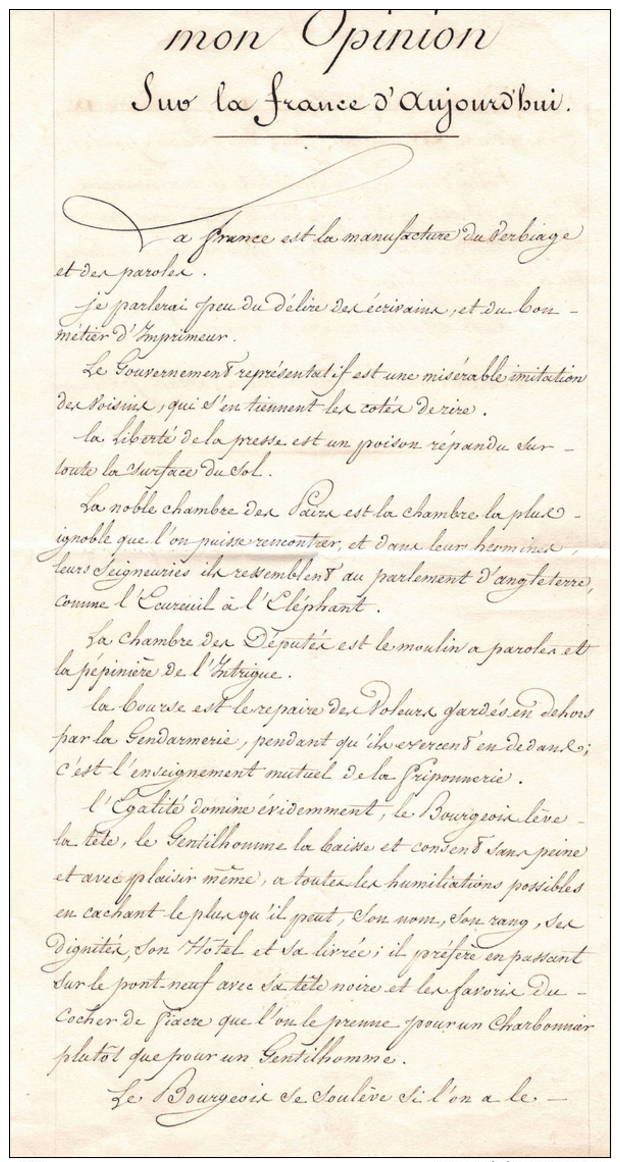 mon Opinion
Sur la france d'aujourd'hui.
La france est la manufacture du Verbiage
et des paroles.
je parlerai peu du délire des écrivains, et du bon -
métier d'Imprimeur.
Le Gouvernement représentatif est une misérable imitation
des voisins, qui s'en tiennent les cotés de rire.
la Liberté de la presse est un poison répandu sur -
toute la surface du sol.
La noble chambre des Pairs est la chambre la plus -
ignoble que l'on puisse rencontrer, et dans leurs hermines,
leurs Seigneuries ils ressemblent au parlement d'angleterre,
comme l'Ecureuil à l'Eléphant.
La chambre des Députés est le moulin a paroles et
la pépinière de l'Intrigue.
la bourse est le repaire des Voleurs gardés en dehors
par la Gendarmerie, pendant qu'ils exercent en dedans;
c'est l'enseignement mutuel de la friponnerie.
l'Egalité domine évidemment, le Bourgeois lève -
la tête, le Gentilhomme la baisse et consent sans peine
et avec plaisir même, a toutes les humiliations possibles
en cachant le plus qu'il peut, son nom, son rang, ses
dignités, son Hotel et sa livrée; il préfère en passant
sur le pont-neuf avec sa tête noire et les favoris du -
Cocher de fiacre que l'on le prenne pour un Charbonnier
plutôt que pour un Gentilhomme.
Le Bourgeois se soulève si l'on a le -